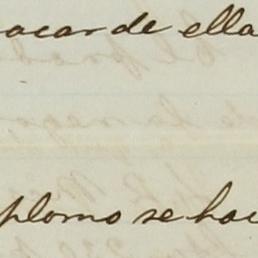 acar de ella
plomo se hac